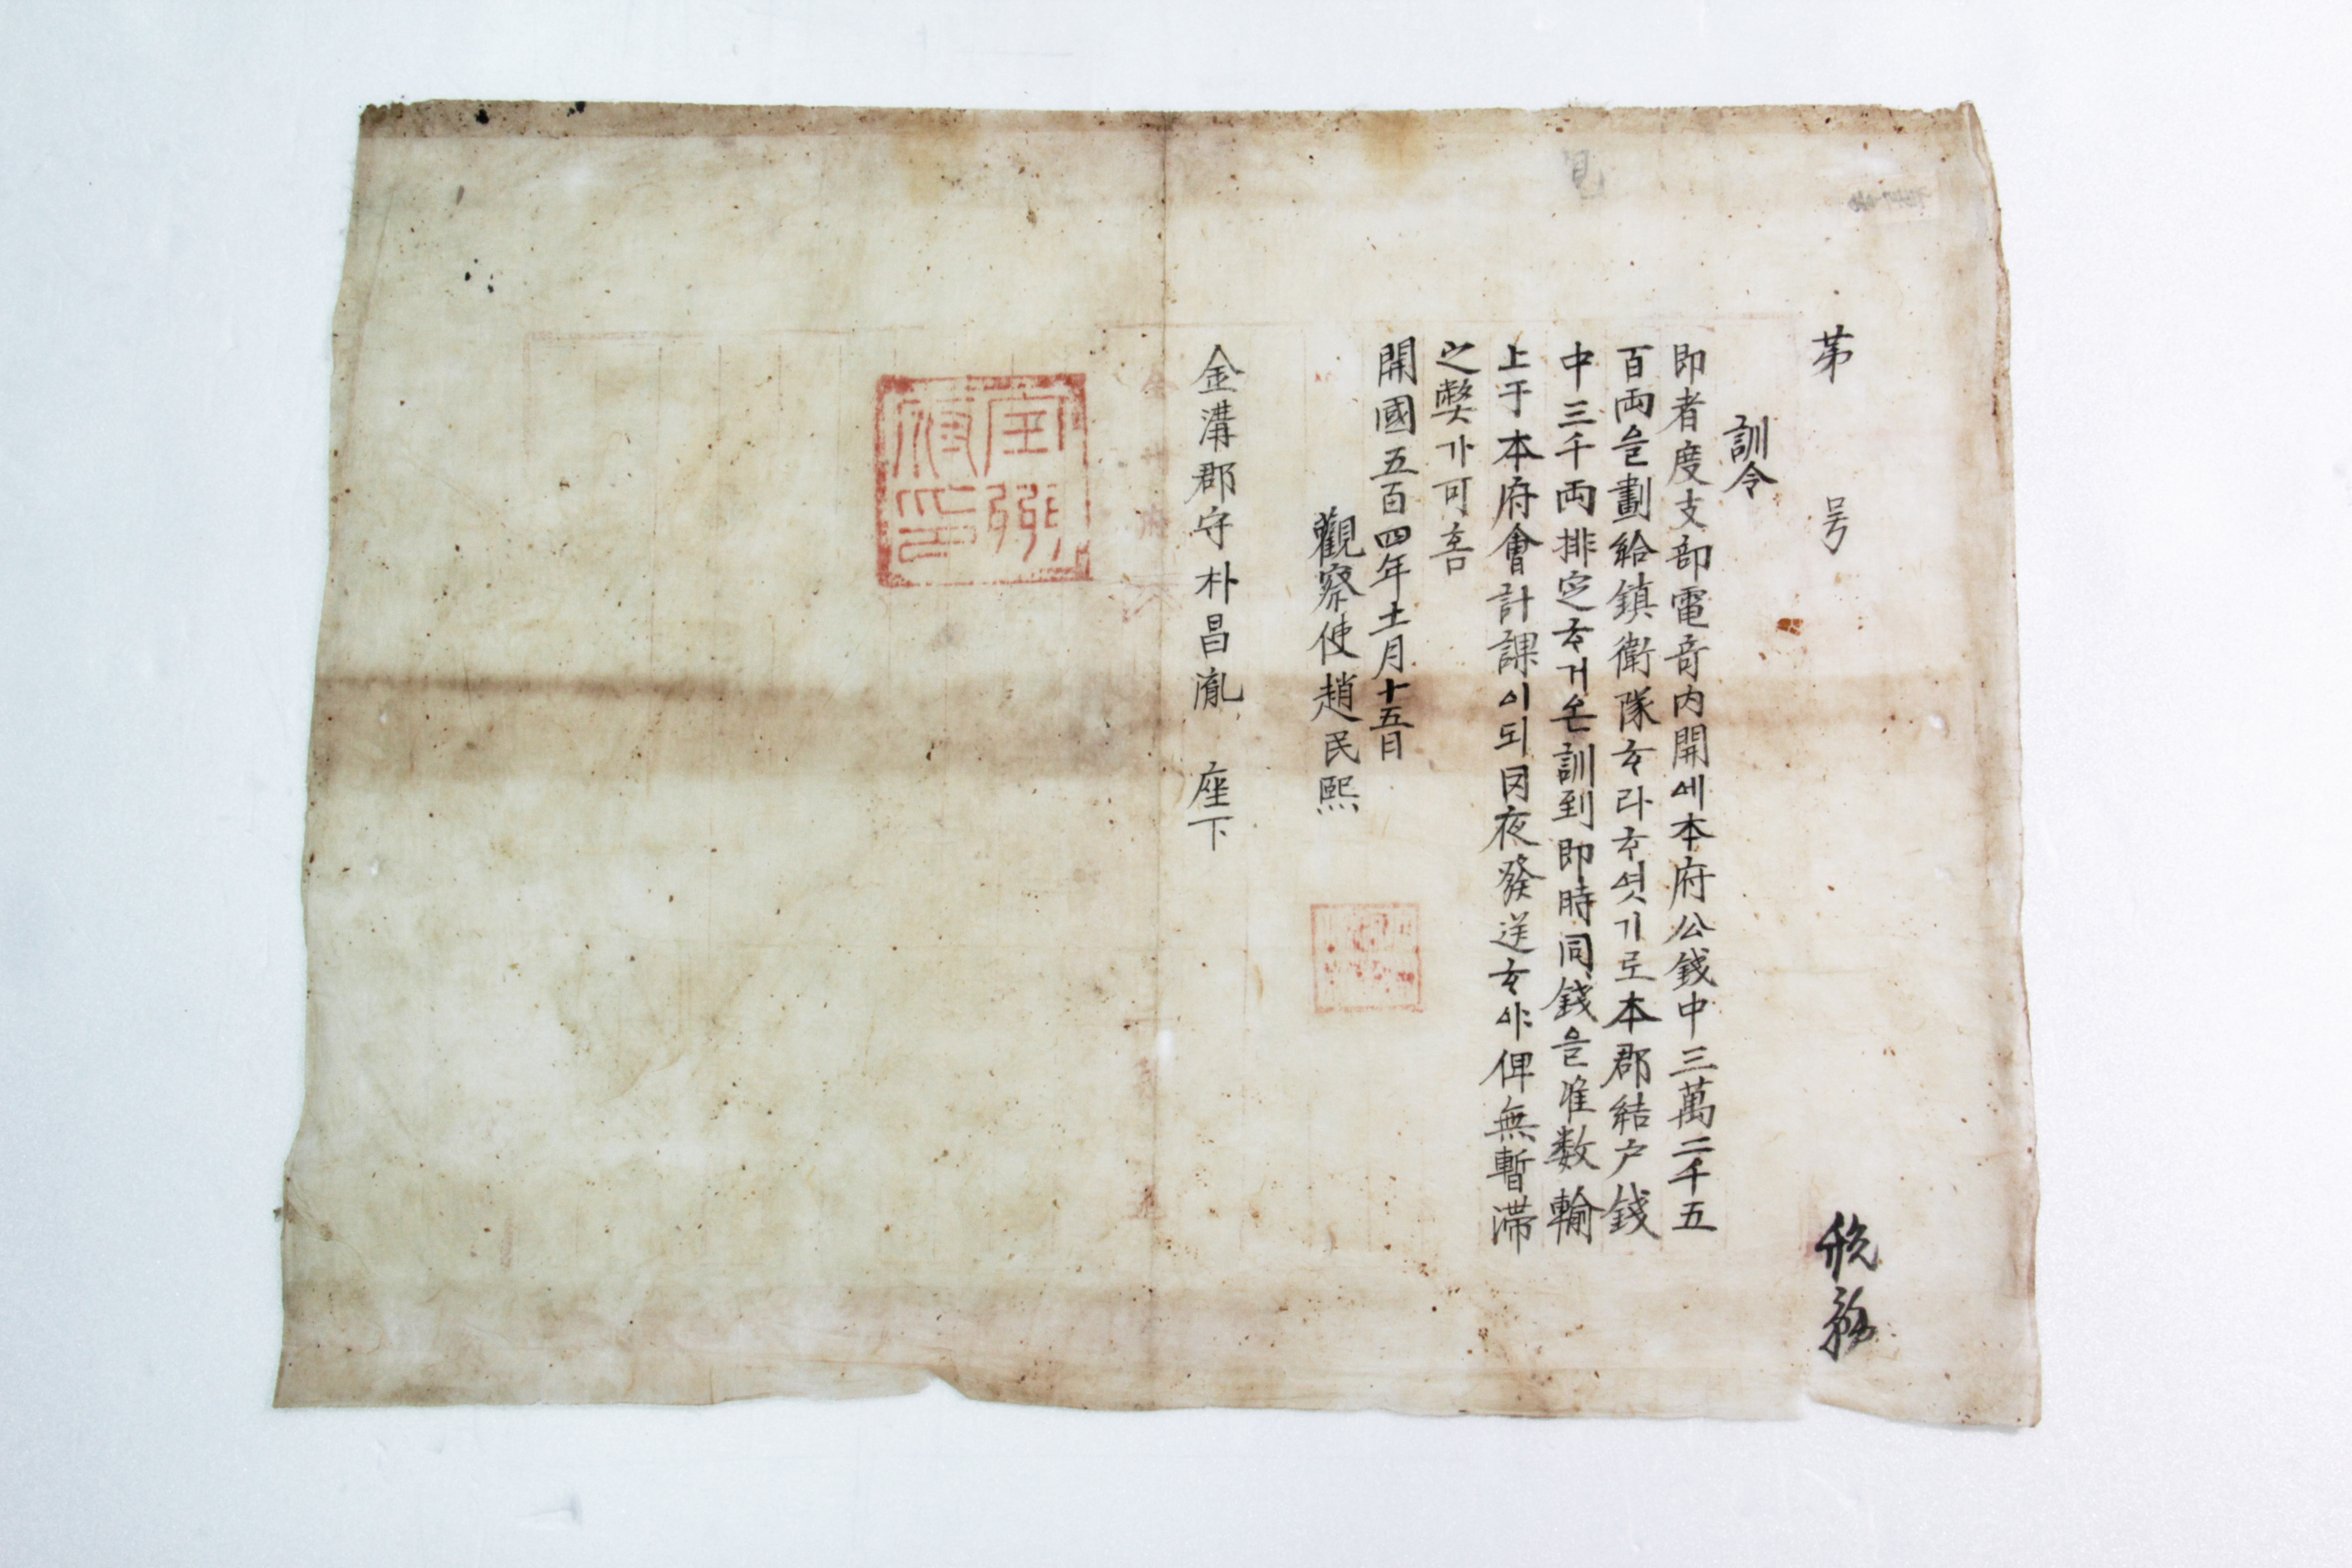 苐 号 稅務
訓令
即者度支部電音內開에本府公錢中三萬二千五
百両을劃給鎮衛隊ᄒᆞ라ᄒᆞ엿기로本郡結户錢
中三千両排定ᄒᆞ거온訓到即時同錢을准数輸
上于本府會計課이되罔夜發送ᄒᆞ야俾無暫滯
之弊가可홈
開國五百四年十一月十五日
觀察使趙民熙
金溝郡守朴昌胤 座下